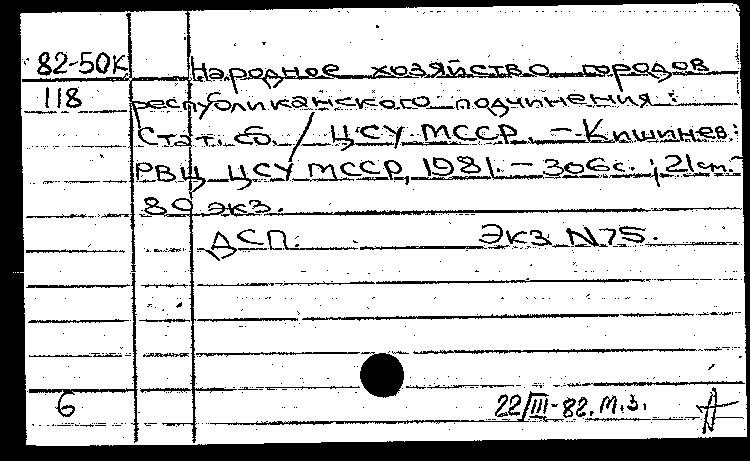 82-50К Народное хозяйство городов
118 республиканского подчинения:
Стат. сб. / ЦСУ МССР. – Кишинев:
РВЦ ЦСУ МССР, 1981. – 306с. ; 21см. –
80 экз.
ДСП. Экз N75.
6 22/III-82. М.З.